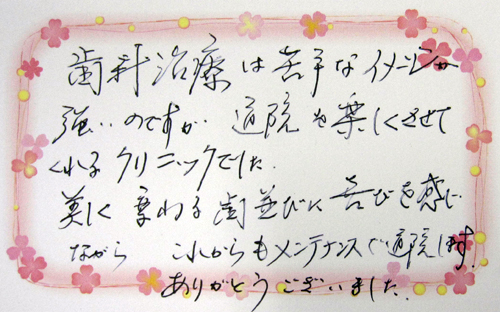 歯科治療は苦手なイメージが
強いのですが 通院を楽しくさせて
くれるクリニックでした。
美しく 変わる歯並びに 喜びを感じ
ながら これからもメンテナンスで通院します。
ありがとうございました。